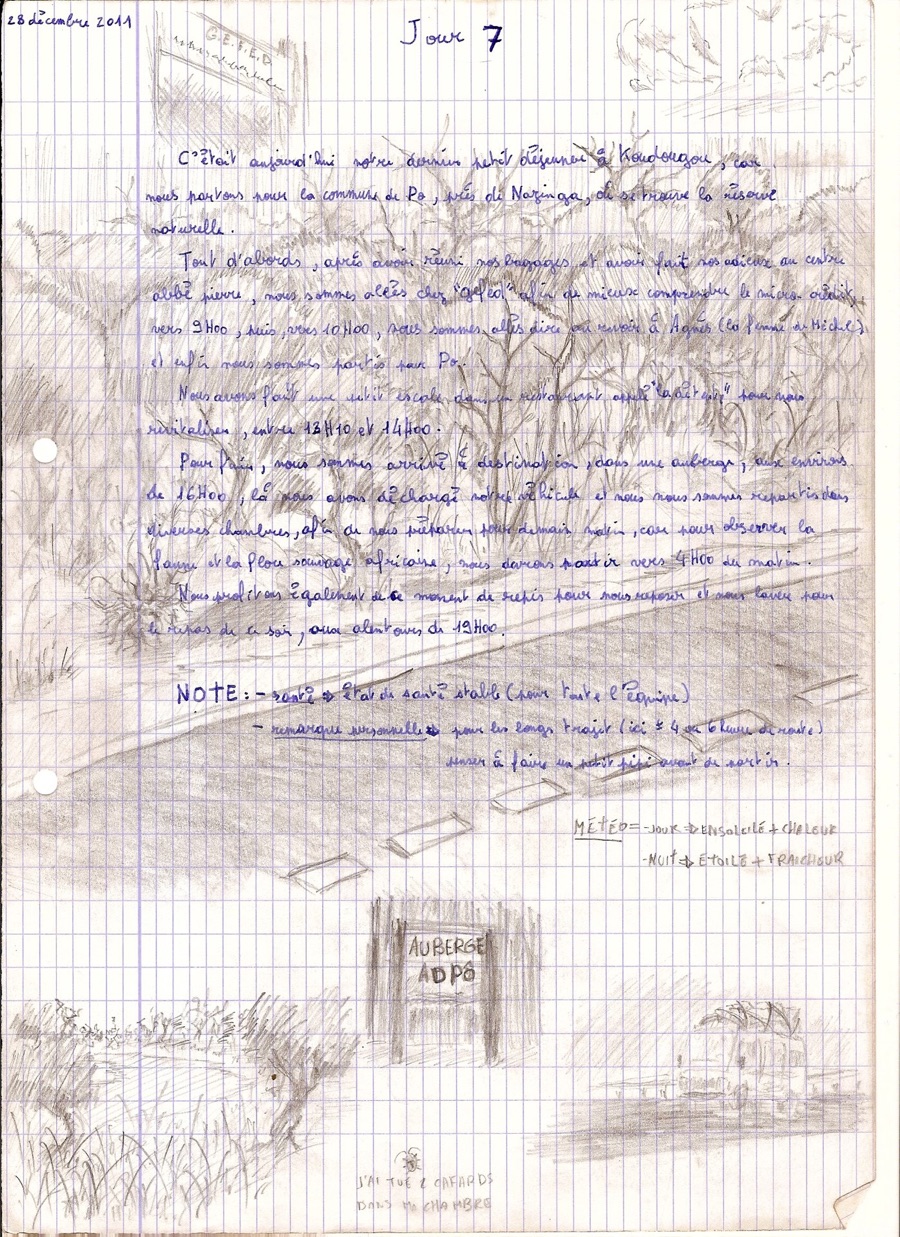 28 décembre 2011
Jour 7
G.E.F.E.D
C'était aujourd'hui notre dernier petit déjeuner à Koudougou, car
nous partons pour la commune de Po, près de Nazinga, où se trouve la réserve
naturelle.
Tout d'abords, après avoir réuni nos bagages et avoir fait nos adieux au centre
abbé pierre, nous sommes allées chez "gefed" afin de mieux comprendre le micro-crédit
vers 9H00, puis, vers 10H00, nous sommes allés dire au revoir à Agnès (la femme de Michel)
et enfin nous sommes partis pour Po.
Nous avons fait une petit escale dans un restaurant appelé pour nous
revitaliser, entre 13H10 et 14H00.
Pour finir, nous sommes arrivé à destination, dans une auberge, aux environs
de 16H00, là nous avons déchargé notre véhicule et nous nous sommes repartis dans
diverses chambres, afin de nous préparer pour demain matin, car pour observer la
faune et la flore sauvage africaine, nous devrons partir vers 4H00 du matin.
Nous profitons également de ce moment de repis pour nous reposer et nous laver pour
le repas de ce soir, aux alentours de 19H00.
NOTE: - santé ⇒ état de santé stable (pour toute l'équipe)
- remarque personnelle ⇒ pour les longs trajet (ici ± 4 ou 6 heure de route)
penser à faire un petit pipi avant de partir.
MÉTÉO = - JOUR ⇒ ENSOLEILÉ + CHALEUR
- NUIT ⇒ ÉTOILÉ + FRAICHEUR
AUBERGE
ADPÔ
J'AI TUÉ 2 CAFARDS
DANS MA CHAMBRE